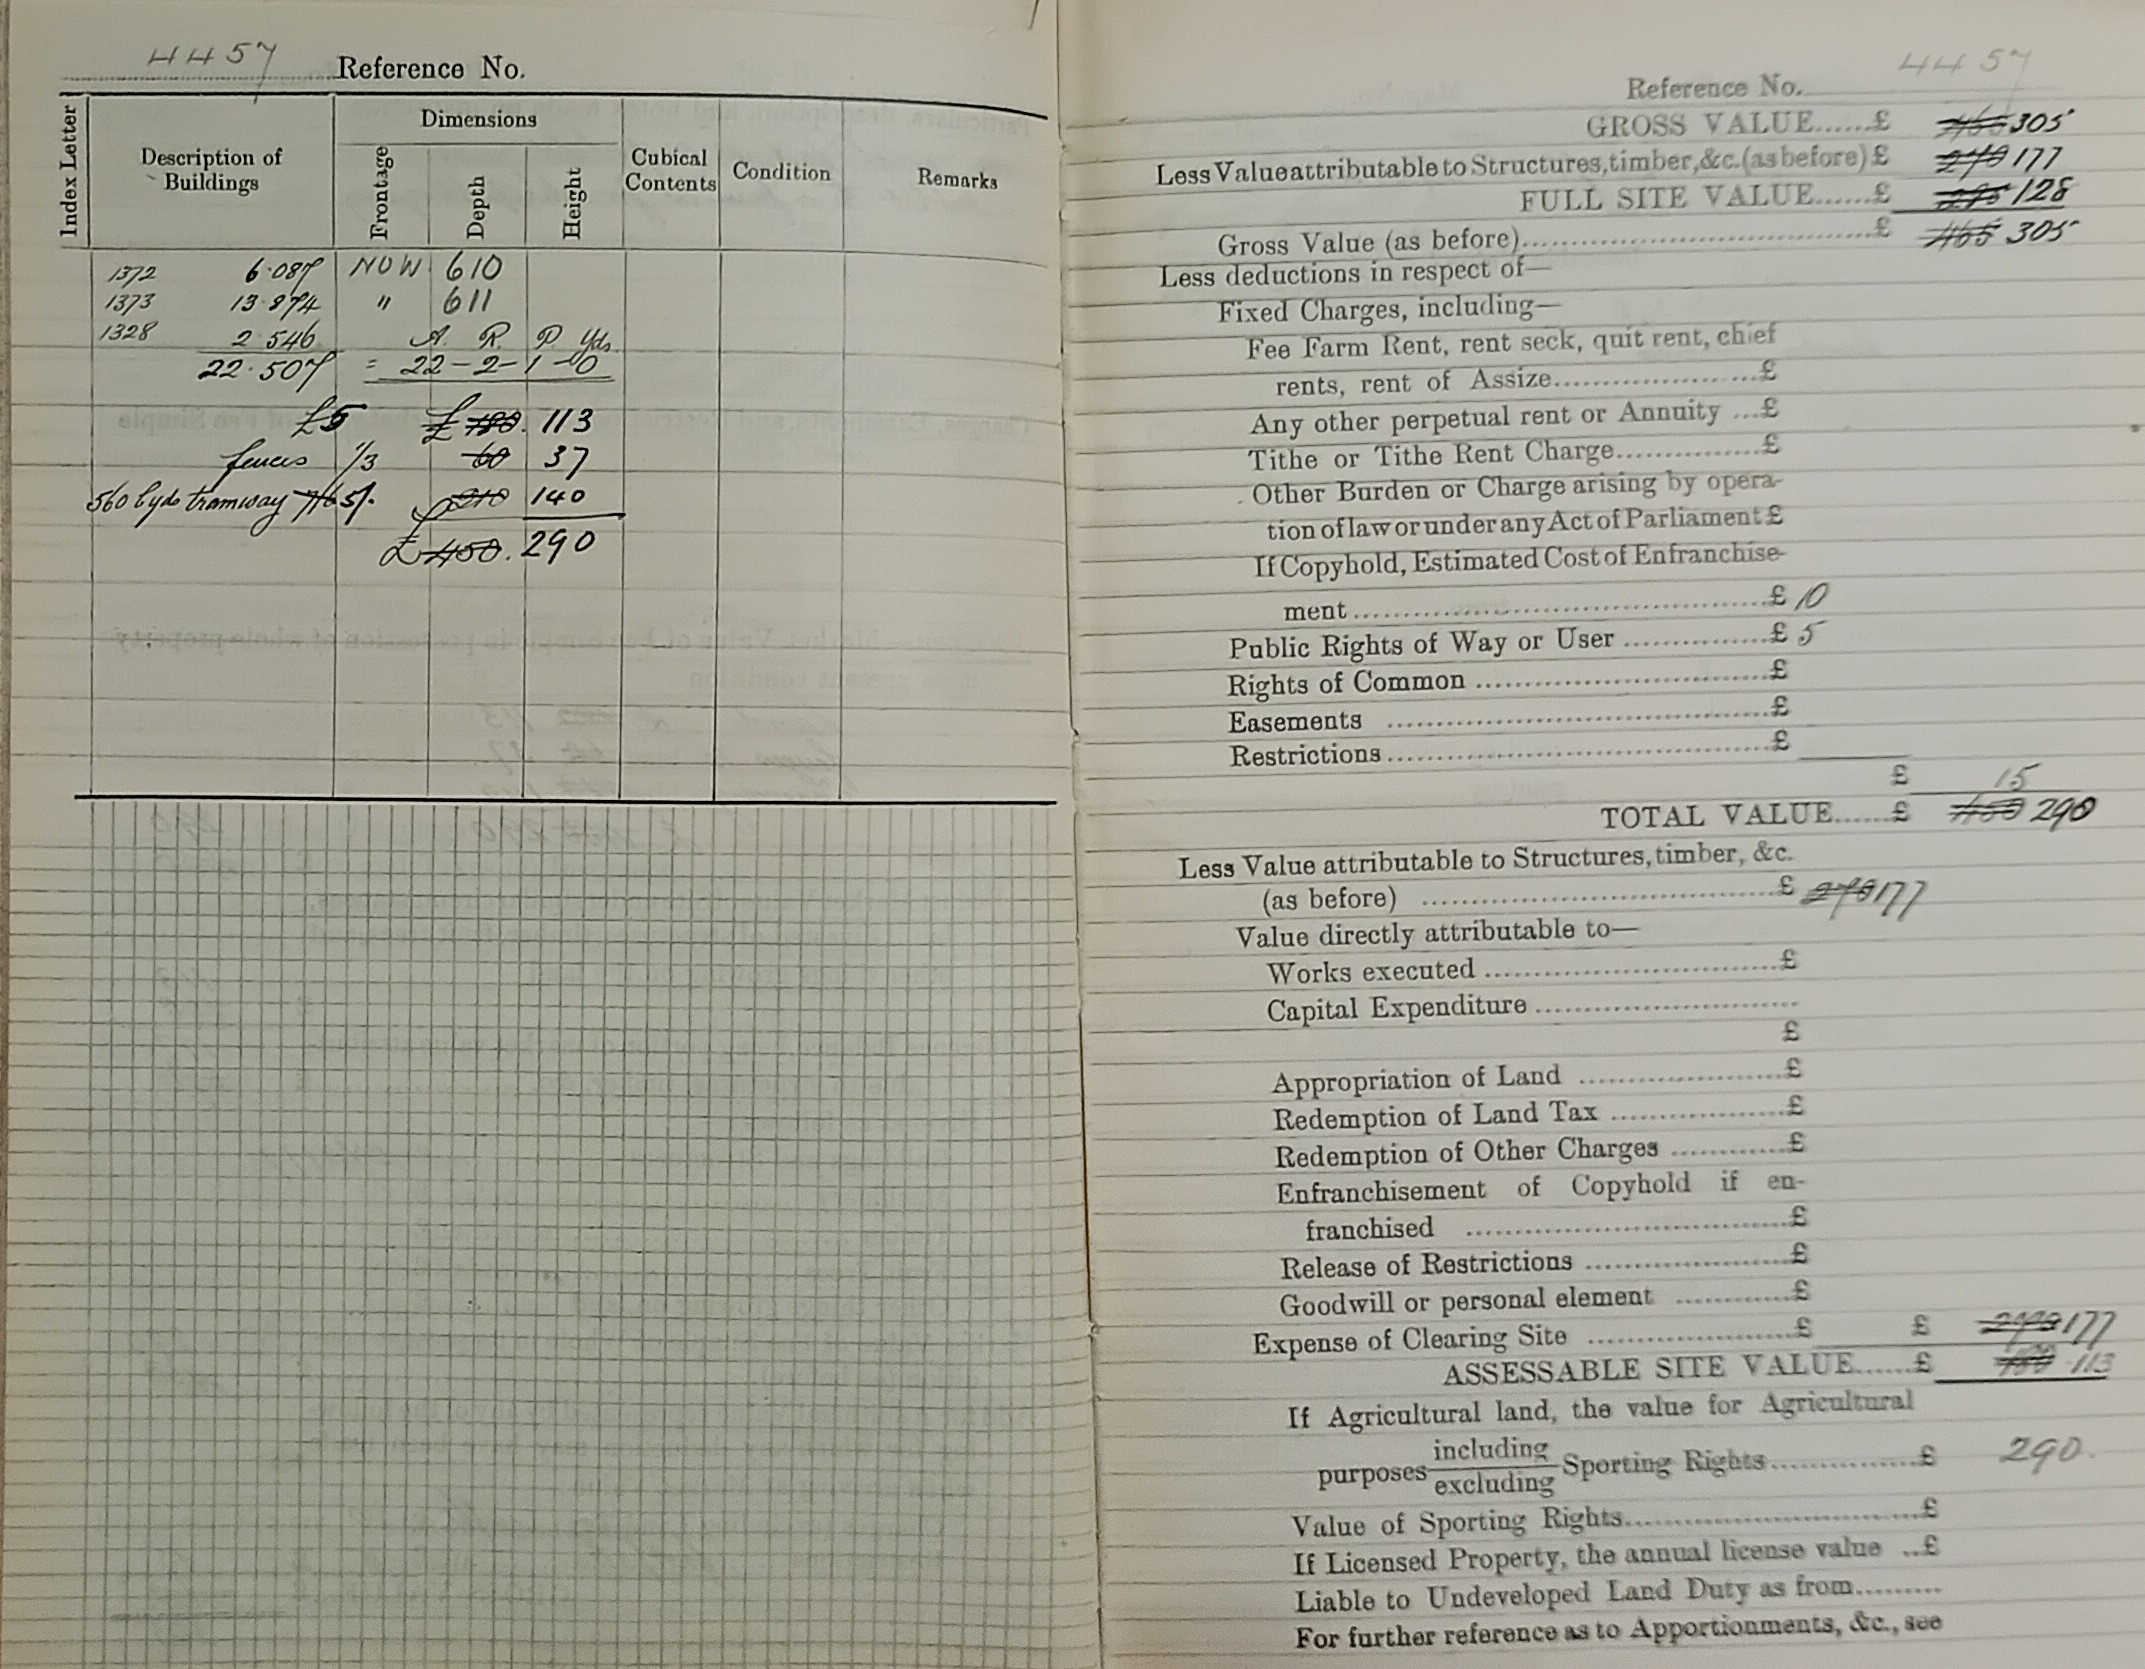 4457 Reference No.
Index Letter
Description of Buildings
Dimensions
Frontage
Depth
Height
Cubical Contents
Condition
Remarks
1372 6.087 NOW 610
1373 13.874 " 611
1328 2.546 A. R. P. Yds.
22.507 = 22-2-1-0
£5 £180. 113
fences 1/3 60 37
560 l yds tramway 7/6 5/. 210 140
£450. 290
Reference No. 4457
GROSS VALUE......£ 465 305
Less Value attributable to Structures, timber, &c. (as before) £ 270 177
FULL SITE VALUE......£ 195 128
Gross Value (as before)......£ 465 305
Less deductions in respect of—
Fixed Charges, including—
Fee Farm Rent, rent seck, quit rent, chief
rents, rent of Assize......£
Any other perpetual rent or Annuity ...£
Tithe or Tithe Rent Charge......£
Other Burden or Charge arising by opera-
tion of law or under any Act of Parliament £
If Copyhold, Estimated Cost of Enfranchise-
ment......£ 10
Public Rights of Way or User......£ 5
Rights of Common......£
Easements......£
Restrictions......£
£ 15
TOTAL VALUE......£ 450 290
Less Value attributable to Structures, timber, &c.
(as before)......£ 270 177
Value directly attributable to—
Works executed......£
Capital Expenditure......
£
Appropriation of Land......£
Redemption of Land Tax......£
Redemption of Other Charges......£
Enfranchisement of Copyhold if en-
franchised......£
Release of Restrictions......£
Goodwill or personal element......£
Expense of Clearing Site......£ £ 270 177
ASSESSABLE SITE VALUE......£ 180 113
If Agricultural land, the value for Agricultural
purposes including excluding Sporting Rights......£ 290.
Value of Sporting Rights......£
If Licensed Property, the annual license value ..£
Liable to Undeveloped Land Duty as from.........
For further reference as to Apportionments, &c., see